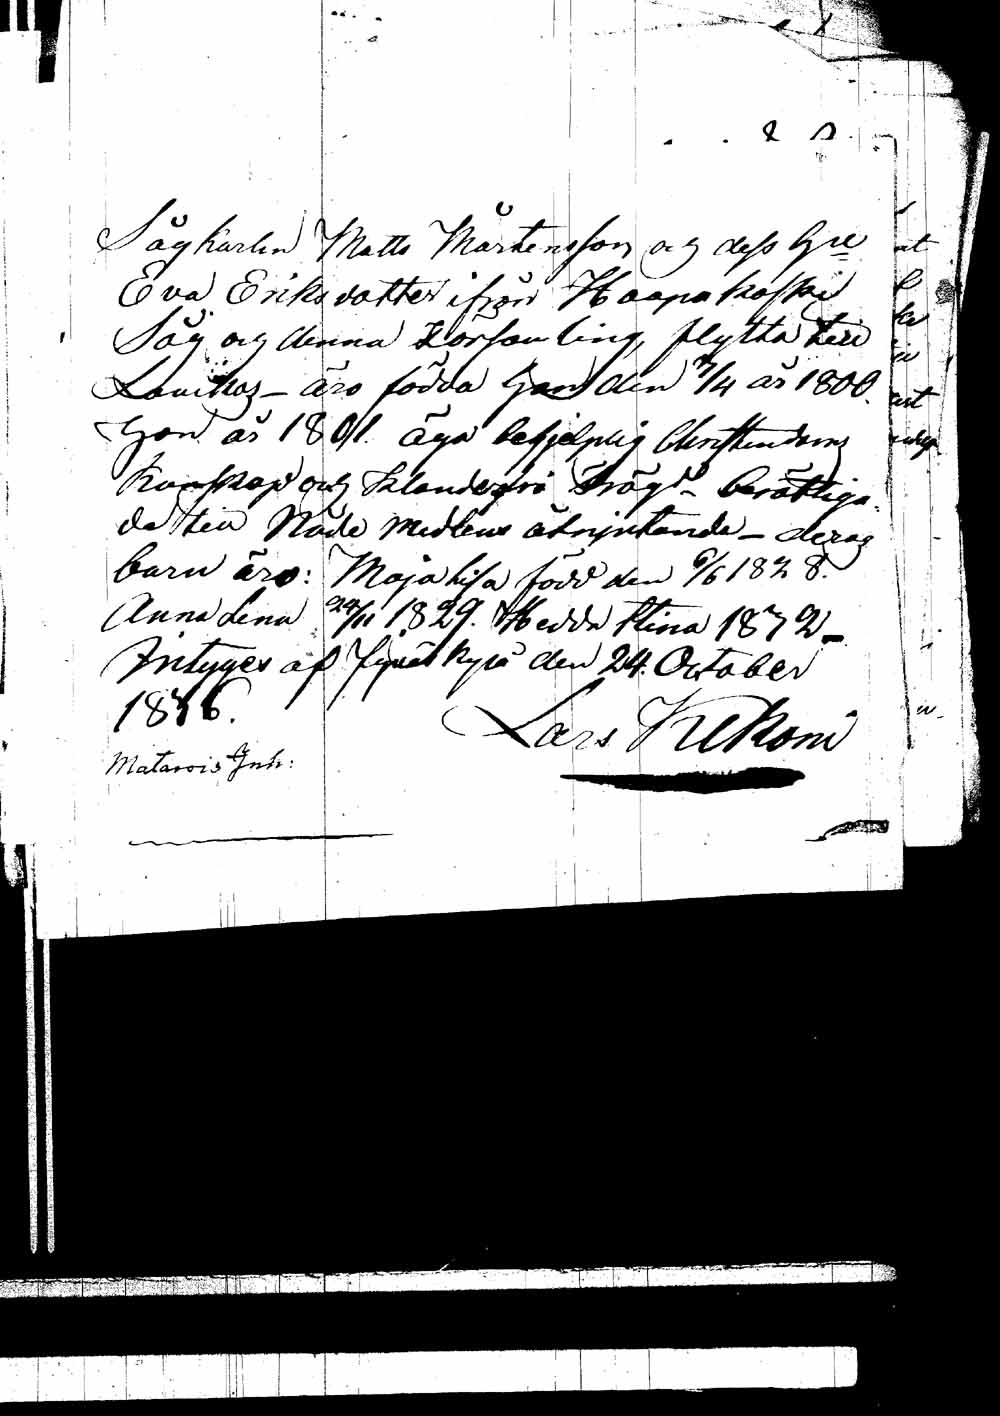 Sågkarlen Matts Mårtensson och dess Hu
Eva Eriksdotter ifrån Haapakoski
Såg och denna Församling, flytta till
äro födda Han den 7/4 år 1800.
Hon år 1801. äga behjelplig Christendoms
Kunskap och Klanderfri frägd berättiga-
de till Nåde Medlens åtnjutande – deras
barn äro: Maja Lisa född den 6/6 1828.
Anna Lena 24/11 1829. Hedda Stina 1832 –
Intyges af den 24. October
1836.
Lars Kekoni